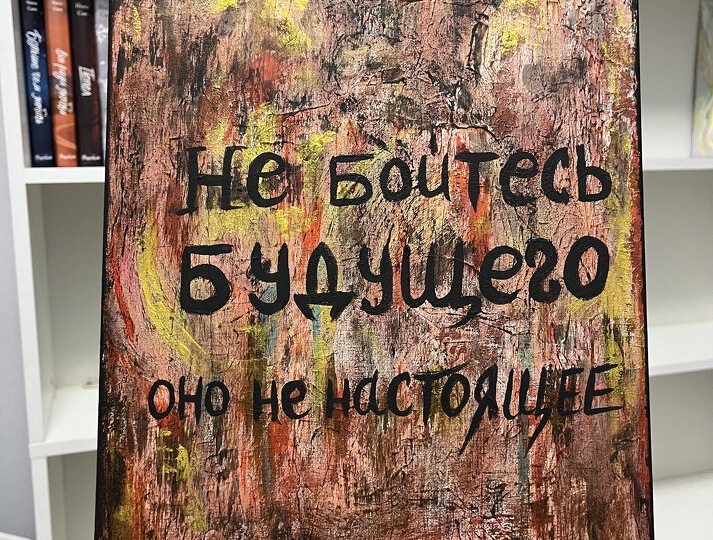 Не бойтесь
будущего
оно не настоящЕЕ